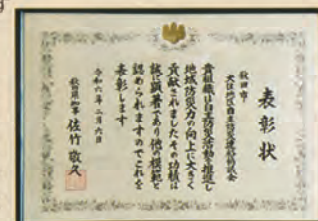 表彰状
秋田市
大住地区自主防災連絡協議会
貴組織は自主防災活動を推進し
地域防災力の向上に大きく
貢献されましたその功績は
誠に顕著であり他の模範と
認められますのでこれを
表彰します
令和六年二月六日
秋田県知事 佐竹敬久